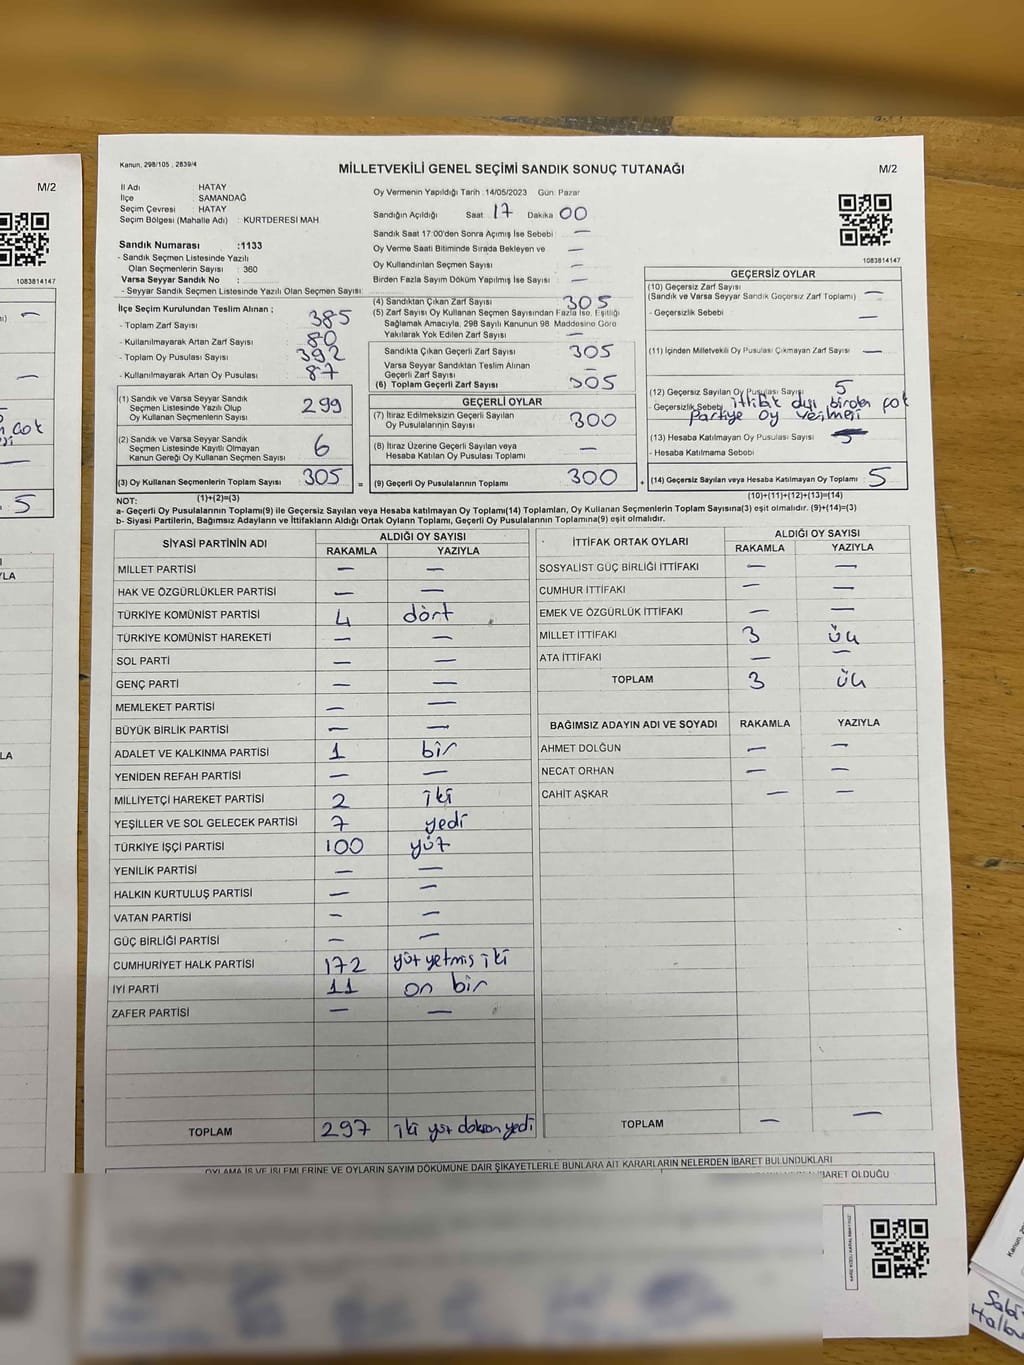 Kanun, 298/105 , 2839/4
MİLLETVEKİLİ GENEL SEÇİMİ SANDIK SONUÇ TUTANAĞI
M/2
M/2
İl Adı HATAY
İlçe SAMANDAĞ
Seçim Çevresi HATAY
Seçim Bölgesi (Mahalle Adı) : KURTDERESİ MAH.
Sandık Numarası :1133
- Sandık Seçmen Listesinde Yazılı
Olan Seçmenlerin Sayısı : 360
Varsa Seyyar Sandık No :
- Seyyar Sandık Seçmen Listesinde Yazılı Olan Seçmen Sayısı:
Oy Vermenin Yapıldığı Tarih : 14/05/2023 Gün: Pazar
Sandığın Açıldığı Saat 17 Dakika 00
Sandık Saat 17:00'den Sonra Açımış İse Sebebi : —
Oy Verme Saati Bitiminde Sırada Bekleyen ve —
Oy Kullandırılan Seçmen Sayısı : —
Birden Fazla Sayım Döküm Yapılmış İse Sayısı : —
1083814147
1083814147
İlçe Seçim Kurulundan Teslim Alınan ;
- Toplam Zarf Sayısı : 385
- Kullanılmayarak Artan Zarf Sayısı : 80
- Toplam Oy Pusulası Sayısı : 392
- Kullanılmayarak Artan Oy Pusulası : 87
(1) Sandık ve Varsa Seyyar Sandık
Seçmen Listesinde Yazılı Olup
Oy Kullanan Seçmenlerin Sayısı : 299
(2) Sandık ve Varsa Seyyar Sandık
Seçmen Listesinde Kayıtlı Olmayan
Kanun Gereği Oy Kullanan Seçmen Sayısı : 6
(3) Oy Kullanan Seçmenlerin Toplam Sayısı : 305
(4) Sandıktan Çıkan Zarf Sayısı : 305
(5) Zarf Sayısı Oy Kullanan Seçmen Sayısından Fazla İse, Eşitliği
Sağlamak Amacıyla, 298 Sayılı Kanunun 98. Maddesine Göre
Yakılarak Yok Edilen Zarf Sayısı : —
Sandıkta Çıkan Geçerli Zarf Sayısı : 305
Varsa Seyyar Sandıktan Teslim Alınan
Geçerli Zarf Sayısı : —
(6) Toplam Geçerli Zarf Sayısı : 305
GEÇERLİ OYLAR
(7) İtiraz Edilmeksizin Geçerli Sayılan
Oy Pusulalarının Sayısı : 300
(8) İtiraz Üzerine Geçerli Sayılan veya
Hesaba Katılan Oy Pusulası Toplamı : —
= (9) Geçerli Oy Pusulalarının Toplamı : 300
GEÇERSİZ OYLAR
(10) Geçersiz Zarf Sayısı
(Sandık ve Varsa Seyyar Sandık Geçersiz Zarf Toplamı) : —
- Geçersizlik Sebebi : —
(11) İçinden Milletvekili Oy Pusulası Çıkmayan Zarf Sayısı : —
(12) Geçersiz Sayılan Oy Pusulası Sayısı : 5
- Geçersizlik Sebebi : ittifak dışı birden çok
partiye oy verilmesi
(13) Hesaba Katılmayan Oy Pusulası Sayısı :
- Hesaba Katılmama Sebebi :
+ (14) Geçersiz Sayılan veya Hesaba Katılmayan Oy Toplamı : 5
NOT: (1)+(2)=(3)
(10)+(11)+(12)+(13)=(14)
a- Geçerli Oy Pusulalarının Toplamı(9) ile Geçersiz Sayılan veya Hesaba katılmayan Oy Toplamı(14) Toplamları, Oy Kullanan Seçmenlerin Toplam Sayısına(3) eşit olmalıdır. (9)+(14)=(3)
b- Siyasi Partilerin, Bağımsız Adayların ve İttifakların Aldığı Ortak Oyların Toplamı, Geçerli Oy Pusulalarının Toplamına(9) eşit olmalıdır.
SİYASİ PARTİNİN ADI ALDIĞI OY SAYISI
RAKAMLA YAZIYLA
MİLLET PARTİSİ — —
HAK VE ÖZGÜRLÜKLER PARTİSİ — —
TÜRKİYE KOMÜNİST PARTİSİ 4 dört
TÜRKİYE KOMÜNİST HAREKETİ — —
SOL PARTİ — —
GENÇ PARTİ — —
MEMLEKET PARTİSİ — —
BÜYÜK BİRLİK PARTİSİ — —
ADALET VE KALKINMA PARTİSİ 1 bir
YENİDEN REFAH PARTİSİ — —
MİLLİYETÇİ HAREKET PARTİSİ 2 iki
YEŞİLLER VE SOL GELECEK PARTİSİ 7 yedi
TÜRKİYE İŞÇİ PARTİSİ 100 yüz
YENİLİK PARTİSİ — —
HALKIN KURTULUŞ PARTİSİ — —
VATAN PARTİSİ — —
GÜÇ BİRLİĞİ PARTİSİ — —
CUMHURİYET HALK PARTİSİ 172 yüz yetmiş iki
İYİ PARTİ 11 on bir
ZAFER PARTİSİ — —
TOPLAM 297 iki yüz doksan yedi
İTTİFAK ORTAK OYLARI ALDIĞI OY SAYISI
RAKAMLA YAZIYLA
SOSYALİST GÜÇ BİRLİĞİ İTTİFAKI — —
CUMHUR İTTİFAKI — —
EMEK VE ÖZGÜRLÜK İTTİFAKI — —
MİLLET İTTİFAKI 3 üç
ATA İTTİFAKI — —
TOPLAM 3 üç
BAĞIMSIZ ADAYIN ADI VE SOYADI RAKAMLA YAZIYLA
AHMET DOLĞUN — —
NECAT ORHAN — —
CAHİT AŞKAR — —
TOPLAM — —
OYLAMA İŞ VE İŞLEMLERİNE VE OYLARIN SAYIM DÖKÜMÜNE DAİR ŞİKAYETLERLE BUNLARA AİT KARARLARIN NELERDEN İBARET BULUNDUKLARI
BARET OLDUĞU